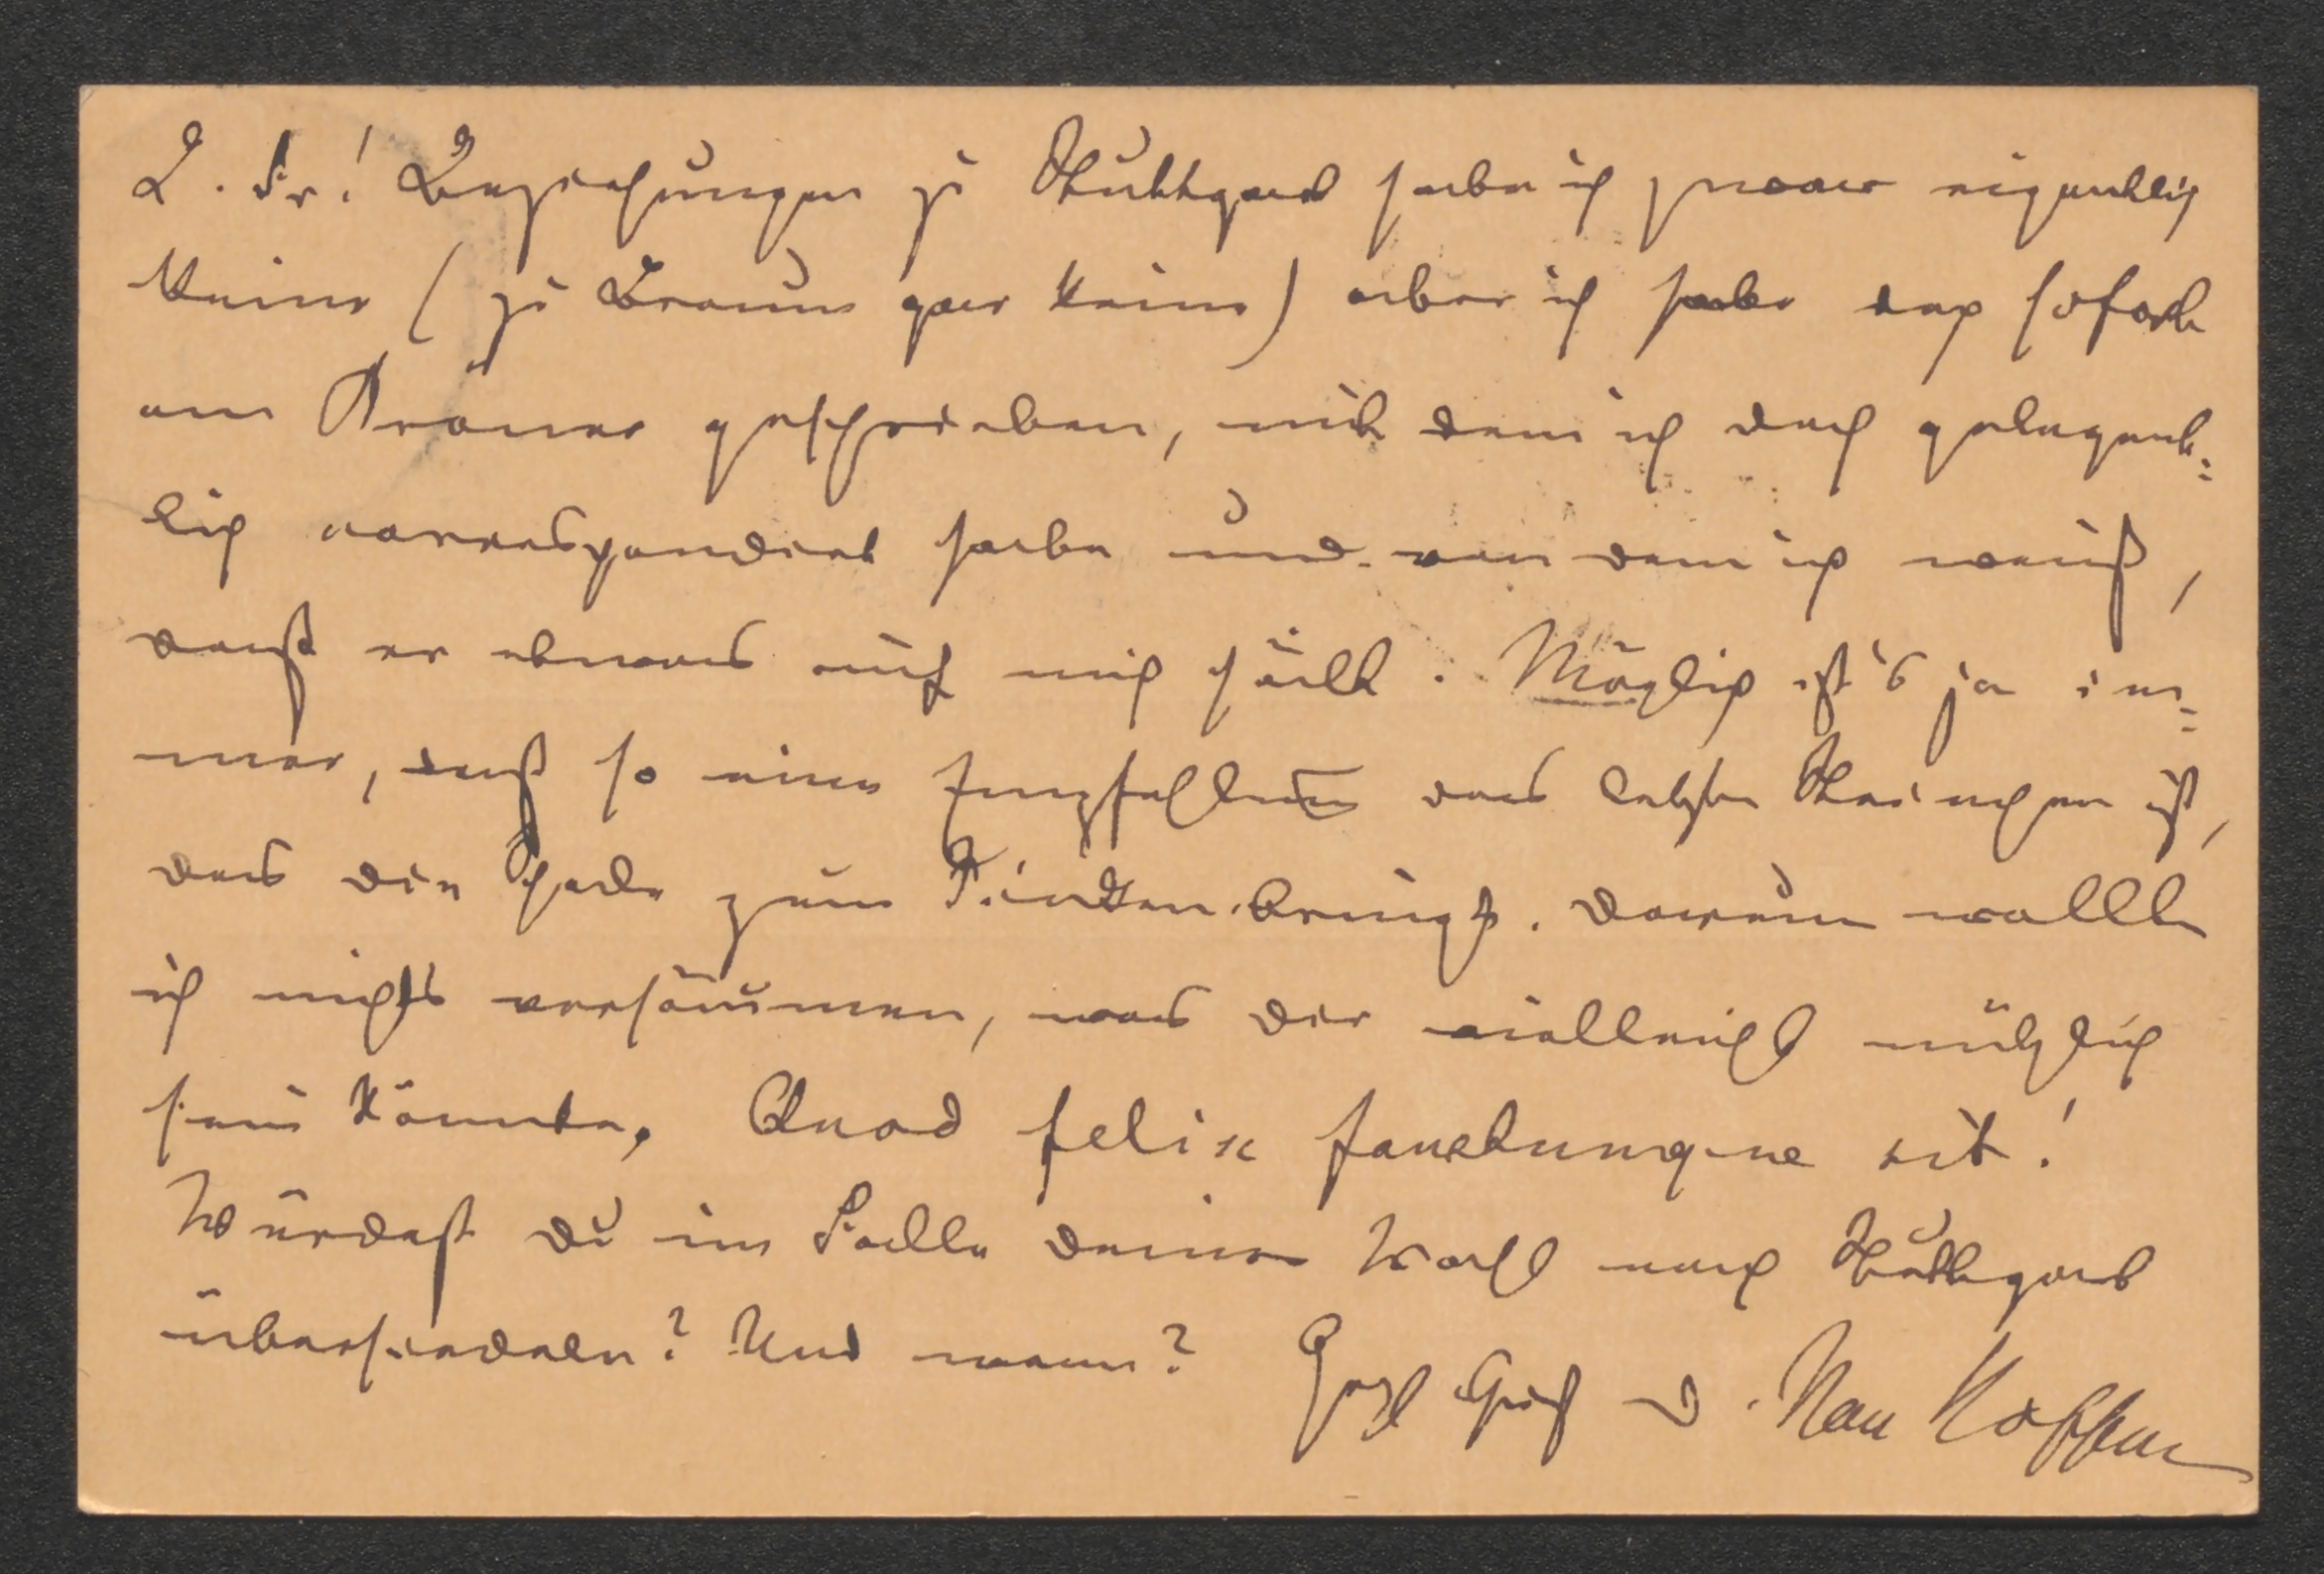 L. Fr! Beziehungen zu Stuttgart habe ich zwar eigentlich
keine (zu Braun gar keine) aber ich habe doch sofort
an Kröner geschrieben, mit dem ich doch gelegent-
lich correspondiert habe und von dem ich weiß,
daß er etwas auf mich hält. Möglich ist's ja im-
mer, daß so eine Empfehlung das letzte Steinchen ist,
das die Schale zum Sinken bringt. Darum wollte
ich nichts versäumen, was dir vielleicht nützlich
sein könnte. Quod felix faustumque sit!
Würdest du im Falle deiner Wahl nach Stuttgart
übersiedeln? Und wann? Herzl Gruß d. Max